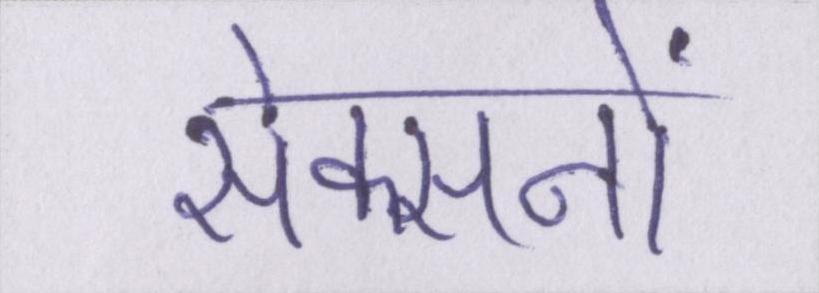 सेक्सनों